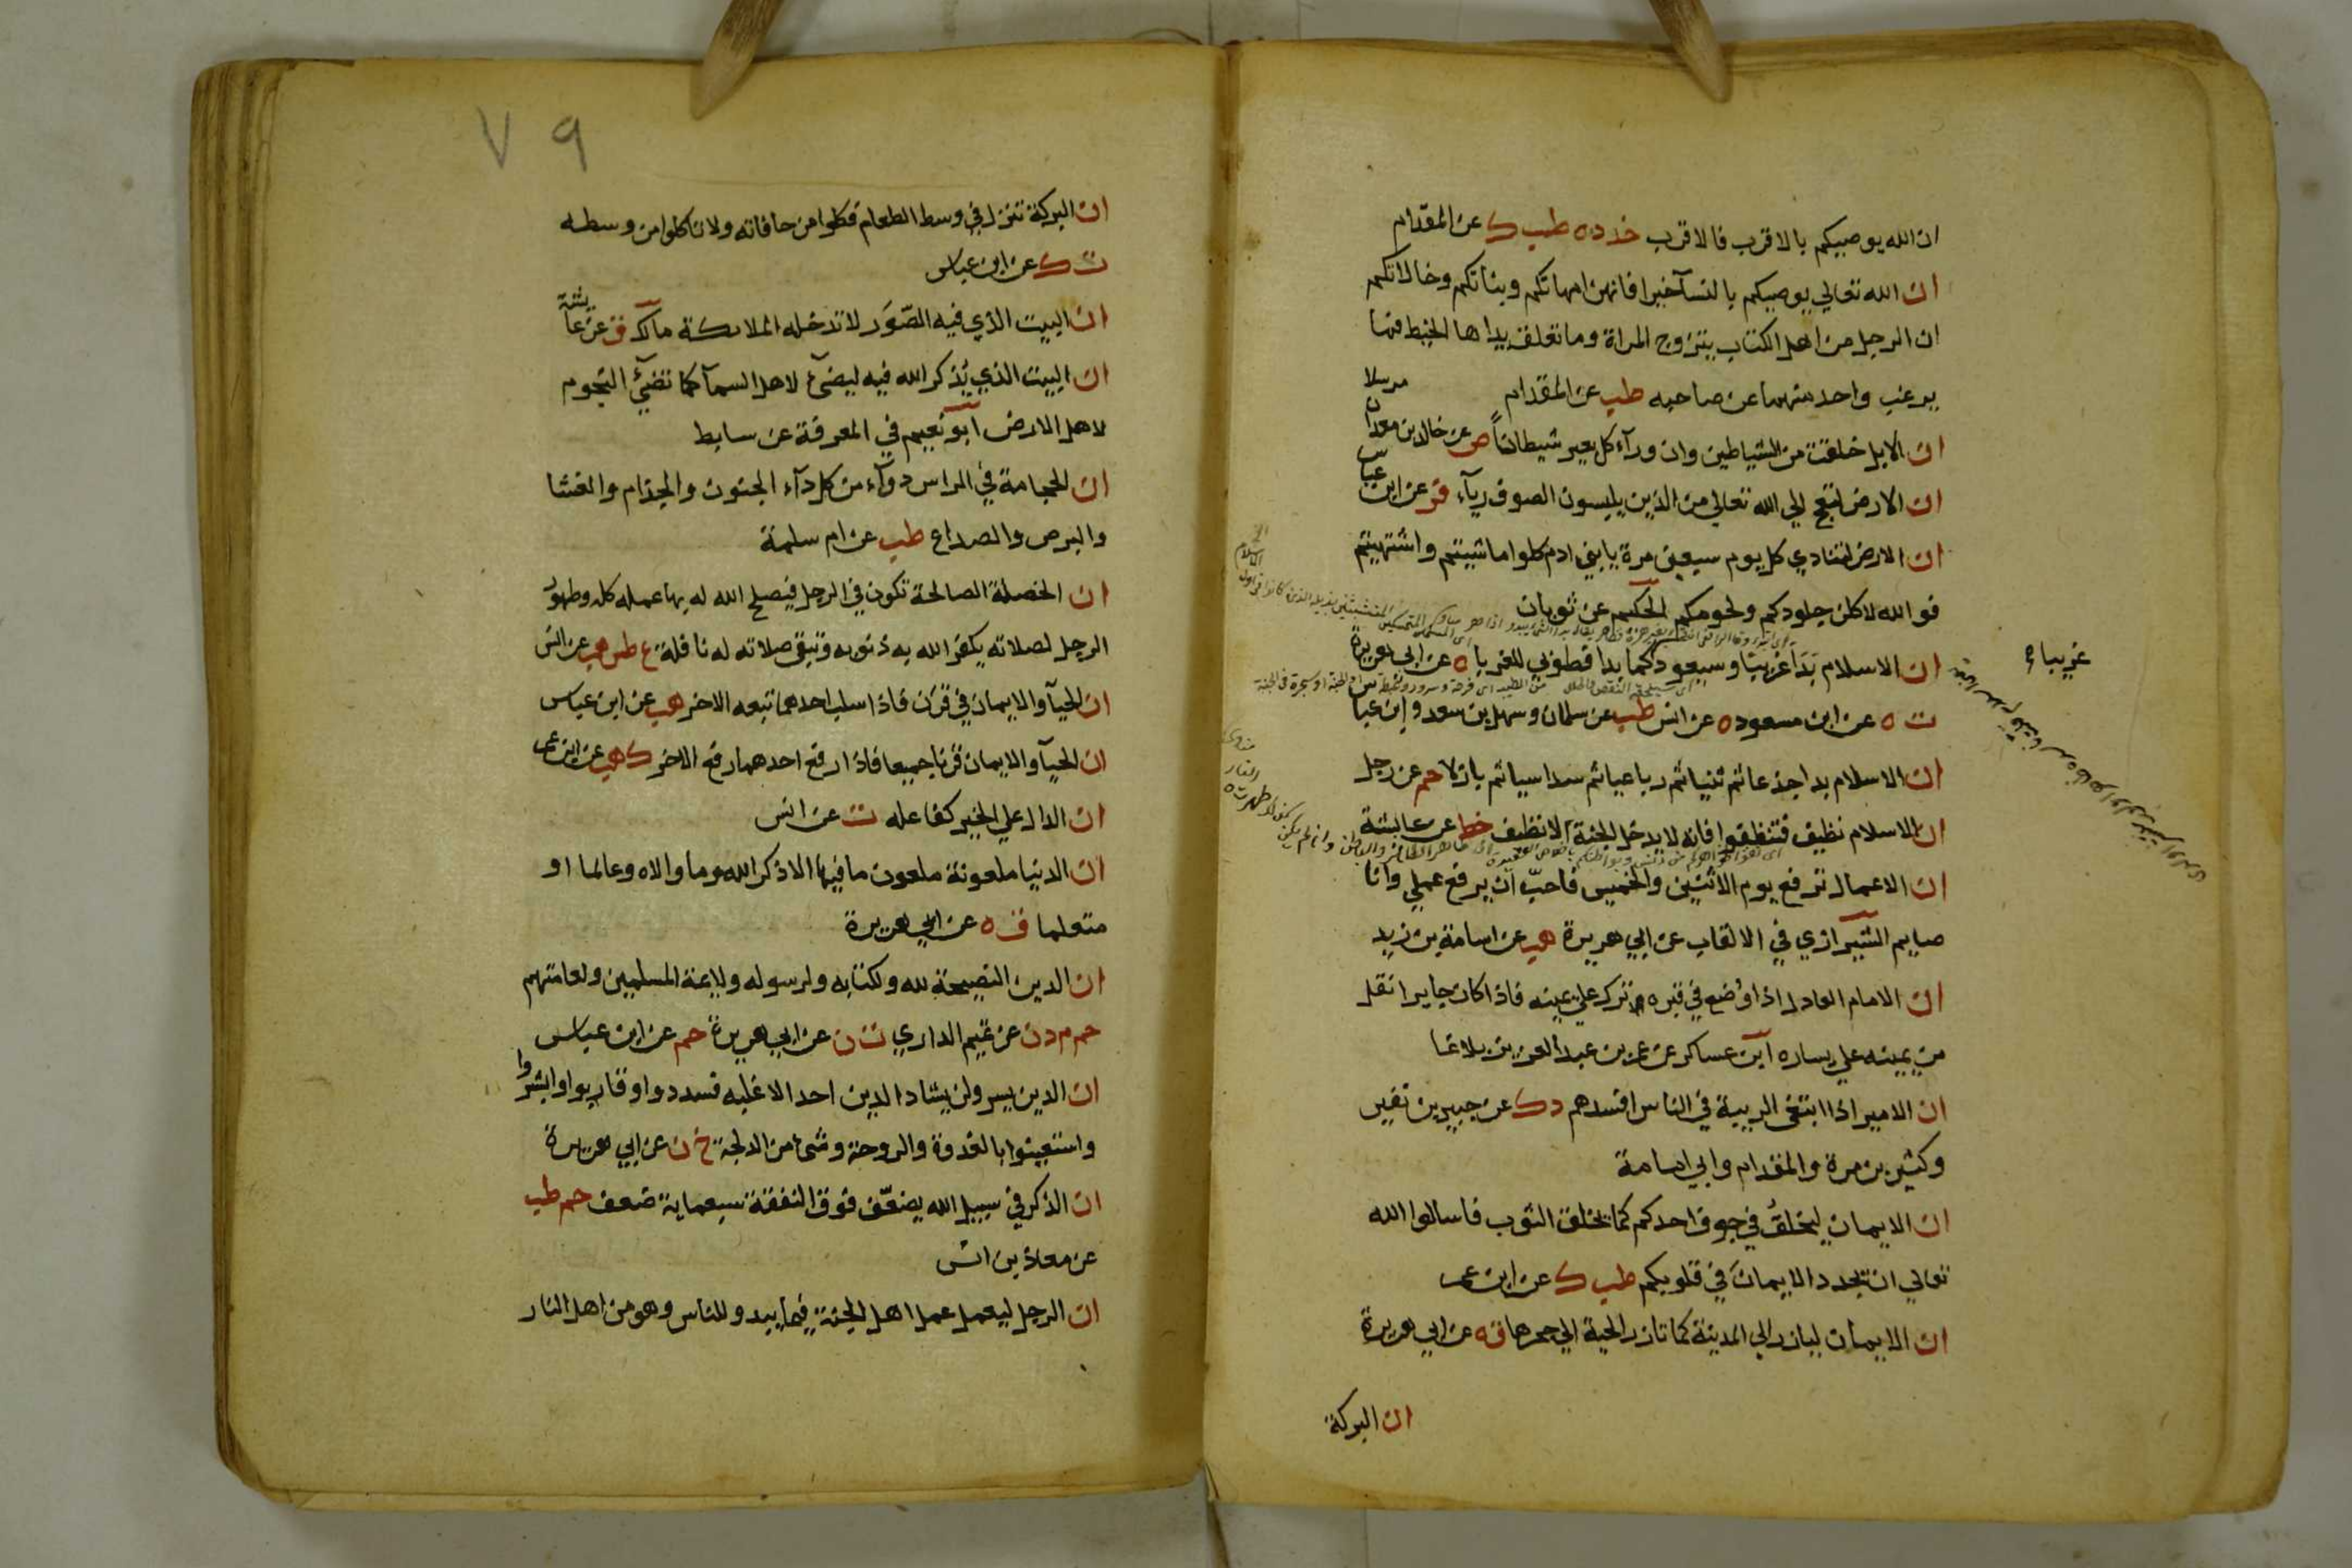 ان الله يوصيكم بالاقرب فالاقرب خد ده طب ك عن المقدام
ان الله تعالي يوصيكم بالنسآ خيرا فانهن امهاتكم وبناتكم وخالاتكم
ان الرجل من اهل الكتاب يتزوج المراة وما تعلق يداها الخيط فما
يرغب واحد منهما عن صاحبه طب عن المقدام
ان الابل خلقت من الشياطين وان ورآء كل بعير شيطاناً ص عن خالد بن معدان مرسلا
ان الارض لتعج الي الله تعالي من الذين يلبسون الصوف ريآء فر عن ابن عباس
ان الارض لتنادي كل يوم سبعين مرة يا بني ادم كلوا ما شيتم واشتهيتم
فوالله لاكلن جلودكم ولحومكم الحكيم عن ثوبان
ان الاسلام بَدَا غريبا وسيعود كما بدا فطوبي للغربا م ه عن ابي هريرة
غريباء
ت ه عن ابن مسعود ه عن انس طب عن سلمان وسهل بن سعد وابن عباس
ان الاسلام بدا جذعا ثم ثنيا ثم رباعيا ثم سداسيا ثم بازلا حم عن رجل
ان الاسلام نظيف فتنظفوا فانه لا يدخل الجنة الا نظيف خط عن عايشة
ان الاعمال ترفع يوم الاثنين والخميس فاحبّ ان يرفع عملي وانا
صايم الشيرازي في الالقاب عن ابي هريرة هب عن اسامة بن زيد
ان الامام العادل اذا وُضع في قبره ترك علي يمينه فاذا كان جايرا نقل
من يمينه علي يساره ابن عساكر عن عمر بن عبد العزيز بلاغا
ان الامير اذا ابتغي الريبة في الناس افسدهم د ك عن جبير بن نفير
وكثير بن مرة والمقدام وابي امامة
ان الايمان ليخلقُ في جوف احدكم كما يخلق الثوب فاسالوا الله
تعالي ان يجدد الايمانَ في قلوبكم طب ك عن ابن عمر
ان الايمان ليازر الي المدينة كما تازر الحية الي جحرها ق ه عن ابي هريرة
ان البركة
٧٩
ان البركة تنزل في وسط الطعام فكلوا من حافاته ولا تاكلوا من وسطه
ت ك عن ابن عباس
ان البيت الذي فيه الصّوَر لا تدخله الملائكة مالك ق عن عايشة
ان البيت الذي يُذكر الله فيه ليضيٓء لاهل السمآ كما تضيٓء النجوم
لاهل الارض ابو نعيم في المعرفة عن سابط
ان الحجامة في الراس دوآء من كل دآء الجنون والجذام والعشا
والبرص والصداع طب عن ام سلمة
ان الخصلة الصالحة تكون في الرجل فيصلح الله له بها عمله كله وطهور
الرجل لصلاته يكفر الله به ذنوبه وتبقي صلاته له نافلة ع طس هب عن انس
ان الحيآ والايمان في قرَن فاذا سلب احدهما تبعه الاخر هب عن ابن عباس
ان الحيآ والايمان قرنا جميعا فاذا رفع احدهما رفع الاخر ك هب عن ابن عمر
ان الدال علي الخير كفاعله ت عن انس
ان الدنيا ملعونة ملعون ما فيها الا ذكر الله وما والاه وعالما او
متعلما ت ه عن ابي هريرة
ان الدين النصيحة لله ولكتابه ولرسوله ولايمة المسلمين ولعامتهم
حم م د ن عن تميم الداري ت ن عن ابي هريرة حم عن ابن عباس
ان الدين يسر ولن يشاد الدين احد الا غلبه فسددوا وقاربوا وابشروا
واستعينوا بالغدوة والروحة وشئ من الدلجة خ ن عن ابي هريرة
ان الذكر في سبيل الله يضعّف فوق النفقة سبعماية ضعف حم طب
عن معاذ بن انس
ان الرجل ليعمل عمل اهل الجنة فيما يبدو للناس وهو من اهل النار